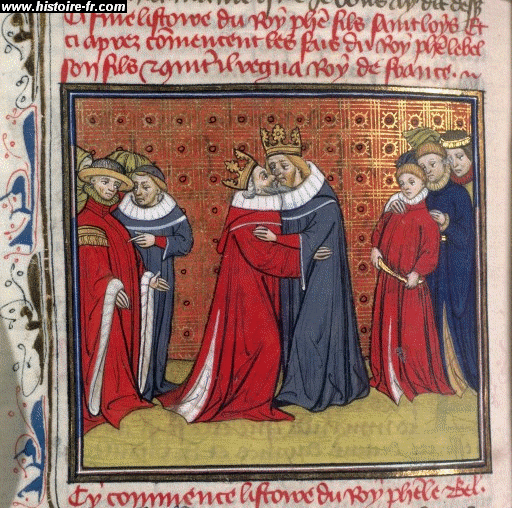 www.histoire-fr.com
Ci fine listoire du Roy phē fils saint loys Et
ci aprez cōmencent les fais du Roy phē lebel
son fils
Roy de france.
Cy commence listoire du Roy phē le Bel.